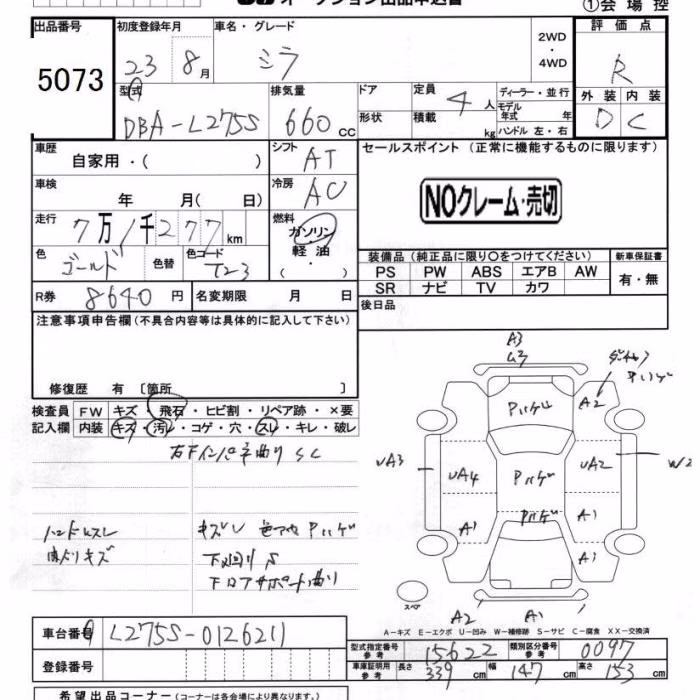 オークション出品申込書
①会場控
出品番号
5073
初度登録年月
23 8月
車名・グレード
ミラ
2WD
・
4WD
評価点
R
型式
DBA-L275S
排気量
660cc
ドア
形状
定員
4人
積載
kg
ディーラー・並行
モデル
年式 年
ハンドル 左・右
外装 内装
D C
車歴
自家用・( )
シフト
AT
セールスポイント(正常に機能するものに限ります)
NOクレーム・売切
車検
年 月( 日)
冷房
AC
走行
7万1千277km
燃料
ガソリン
・
軽油
・
( )
色
ゴールド
色替
色コード
T23
装備品(純正品に限り〇をつけてください)
PS PW ABS エアB AW
SR ナビ TV カワ
新車保証書
有・無
R券
8640円
名変期限 月 日
後日品
注意事項申告欄(不具合内容等は具体的に記入して下さい)
修復歴 有〔箇所 〕
検査員
記入欄
FW キズ・飛石・ヒビ割・リペア跡・×要
内装 キズ・汚レ・コゲ・穴・スレ・キレ・破レ
ハンドルスレ
内ドリキズ
下回りS
A3
A2
Pハゲ
UA3
UA4
Pハゲ
UA2
W2
A1
Pハゲ
A1
スペア
A2
A1
A-キズ E-エクボ U-凹み W-補修跡 S-サビ C-腐食 XX-交換済
車台番号
L275S-0126211
型式指定番号
参考
15622
類別区分番号
参考
0097
登録番号
車庫証明用
参考
長さ 339cm 幅 147cm 高さ 153cm
希望出品コーナー(コーナーは各会場により異なります。)